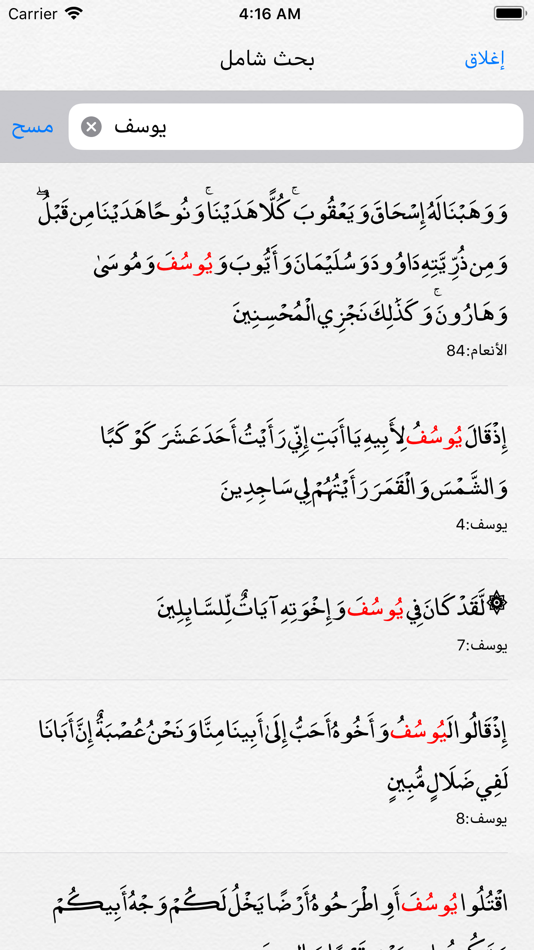 Carrier 4:16 AM
بحث شامل
إغلاق
يوسف
مسح
وَوَهَبْنَا لَهُ إِسْحَاقَ وَيَعْقُوبَ ۚ كُلًّا هَدَيْنَا ۚ وَنُوحًا هَدَيْنَا مِن قَبْلُ ۖ
وَمِن ذُرِّيَّتِهِ دَاوُودَ وَسُلَيْمَانَ وَأَيُّوبَ وَيُوسُفَ وَمُوسَىٰ
وَهَارُونَ ۚ وَكَذَٰلِكَ نَجْزِي الْمُحْسِنِينَ
الأنعام:84
إِذْ قَالَ يُوسُفُ لِأَبِيهِ يَا أَبَتِ إِنِّي رَأَيْتُ أَحَدَ عَشَرَ كَوْكَبًا
وَالشَّمْسَ وَالْقَمَرَ رَأَيْتُهُمْ لِي سَاجِدِينَ
يوسف:4
۞ لَّقَدْ كَانَ فِي يُوسُفَ وَإِخْوَتِهِ آيَاتٌ لِّلسَّائِلِينَ
يوسف:7
إِذْ قَالُوا لَيُوسُفُ وَأَخُوهُ أَحَبُّ إِلَىٰ أَبِينَا مِنَّا وَنَحْنُ عُصْبَةٌ إِنَّ أَبَانَا
لَفِي ضَلَالٍ مُّبِينٍ
يوسف:8
اقْتُلُوا يُوسُفَ أَوِ اطْرَحُوهُ أَرْضًا يَخْلُ لَكُمْ وَجْهُ أَبِيكُمْ